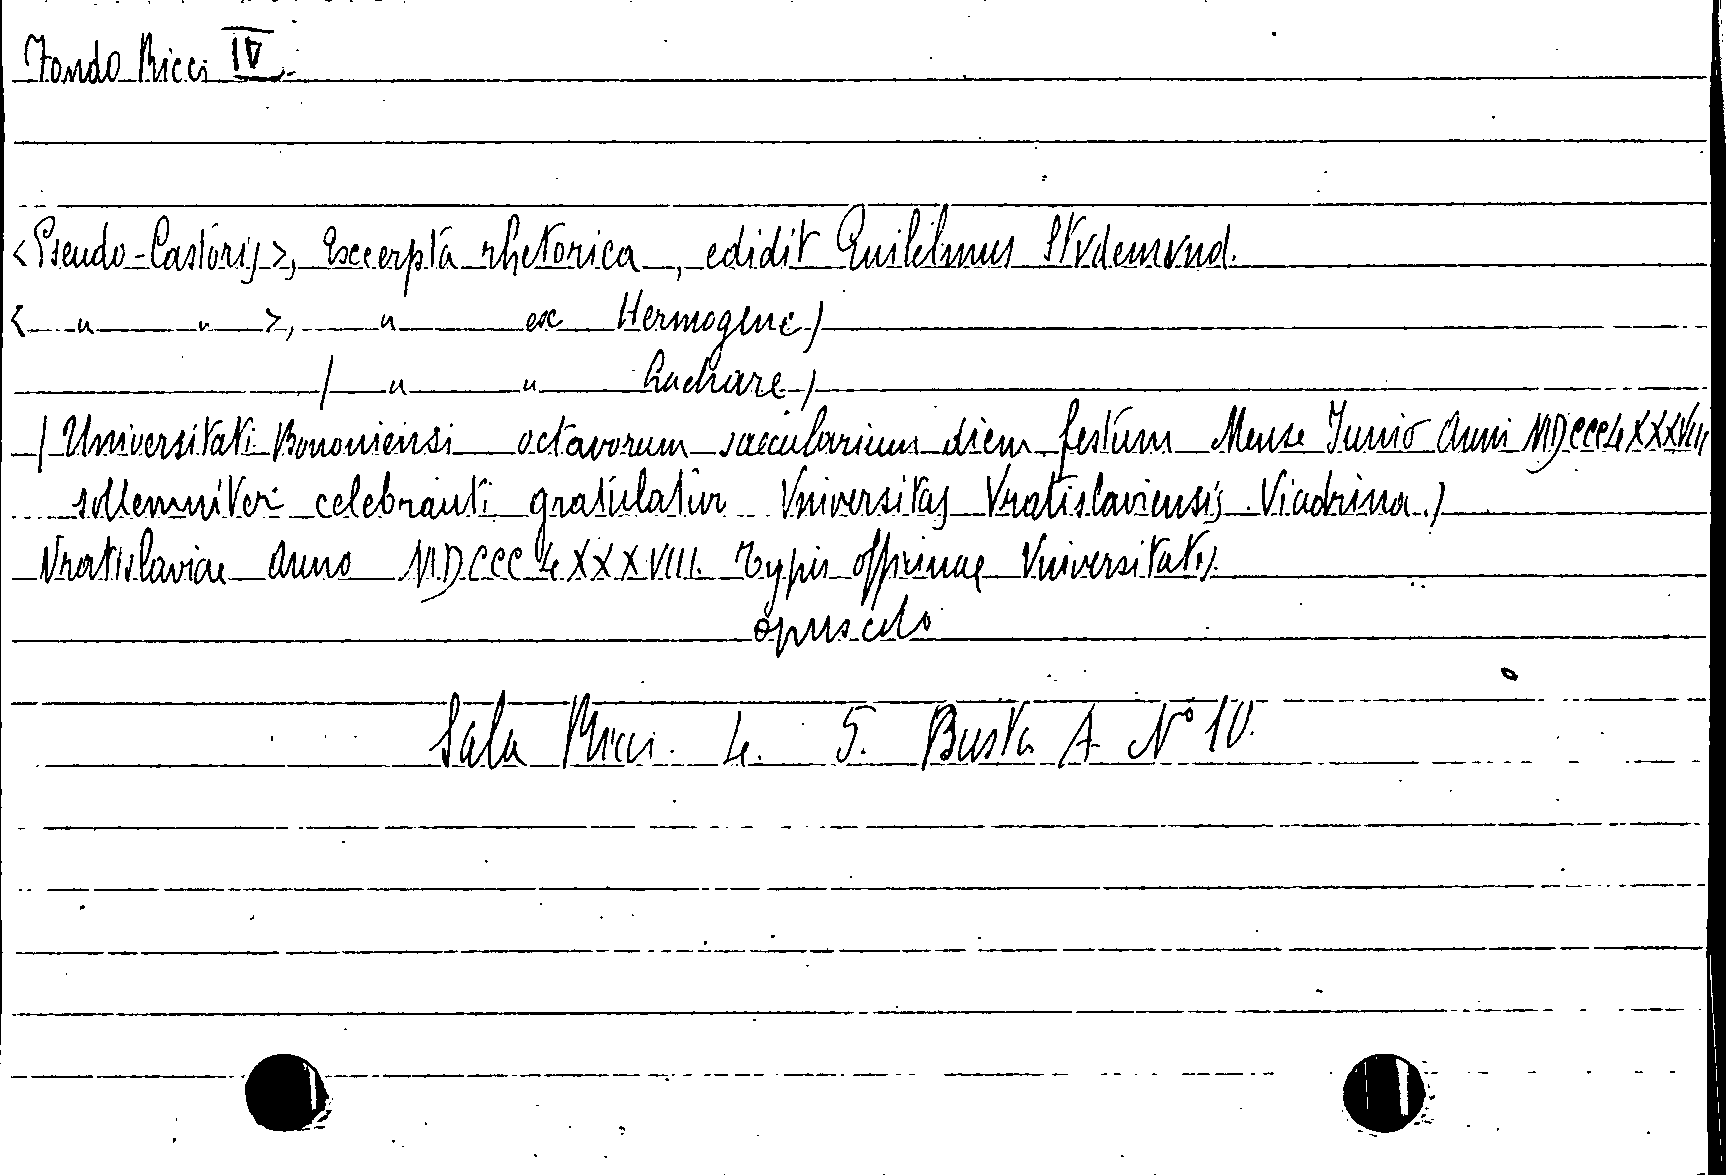 Fondo Ricci IV.
<Pseudo-Castoris>, Excerpta rhetorica, edidit Guilelmus Stvdemvnd.
< " " >, " ex Hermogene/
/ " " Lachare/
/Universitati Bononiensi octavorum saecularium diem festum Mense Junio Anni MDCCCLXXXVIII
sollemniter celebranti gratulatur Vniversitas Vratislaviensis Viadrina./
Vratislaviae Anno MDCCCLXXXVIII. Typis officinae Vniversitatis.
opuscolo
Sala Ricci. 4. 5. Busta A. N° 10.